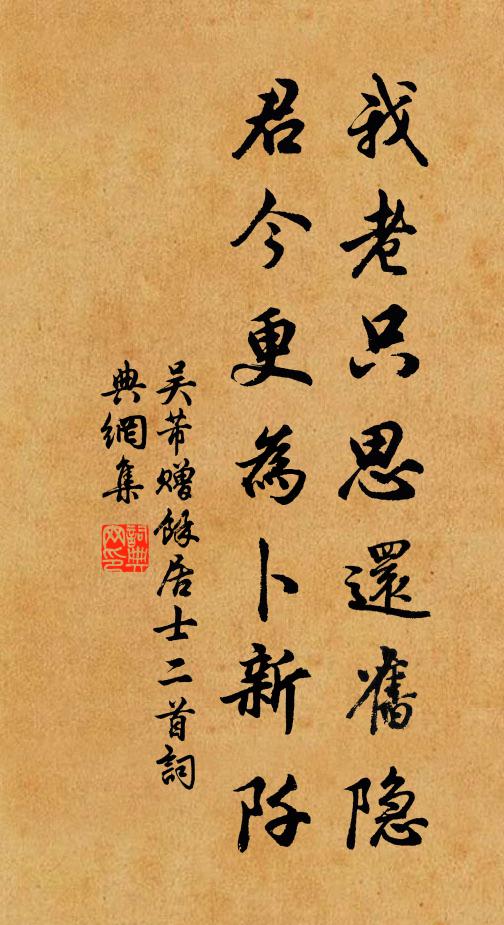 我老只思還舊隐
君今更為卜新阡
吴芾赠餘居士二首詞
典網集
詞典網印